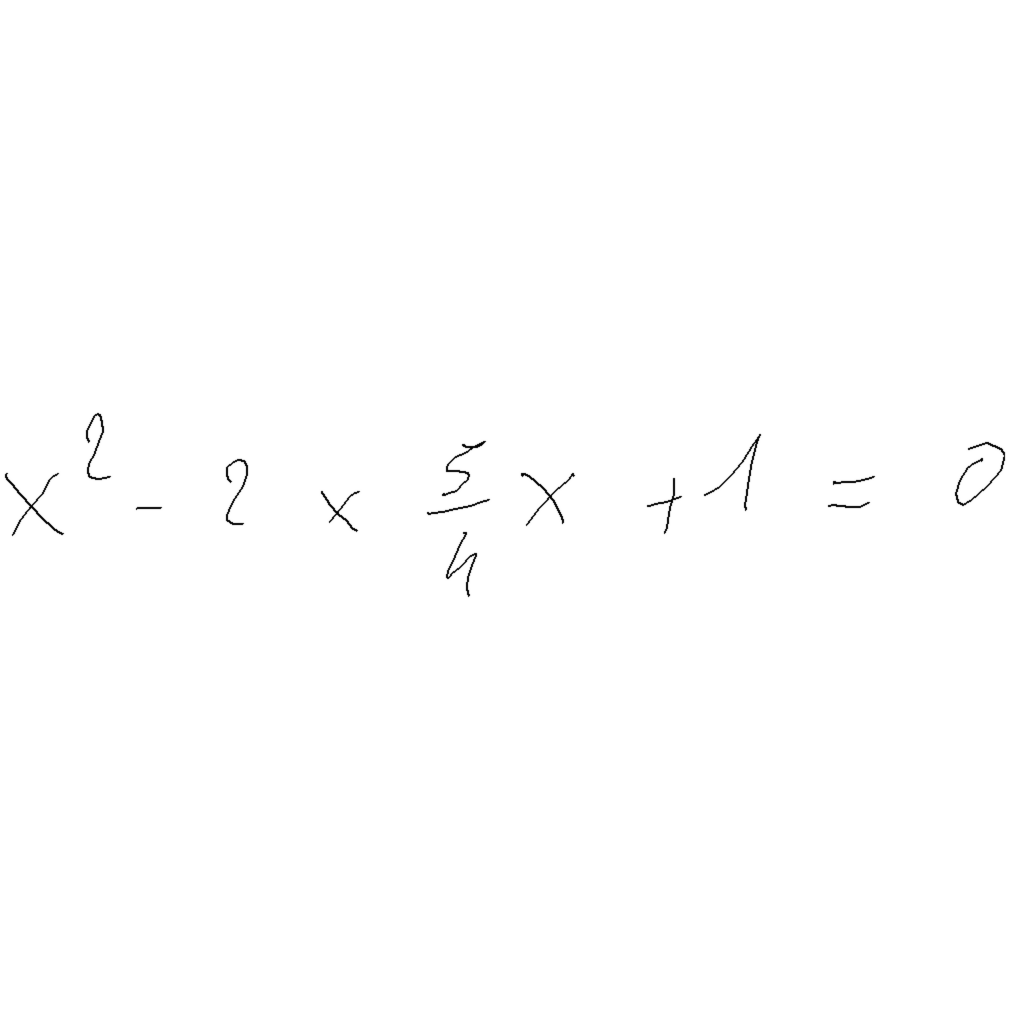 x² - 2 × 5/4 x + 1 = 0